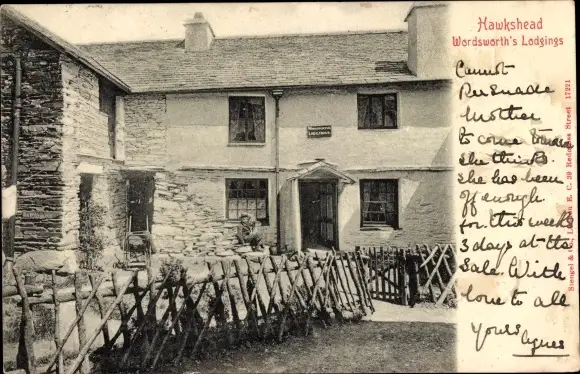 Hawkshead
Wordsworth's Lodgings
WORDSWORTH'S
LODGINGS
Cannot
Persuade
Mother
to come
she thinks
she has been
off enough
for this week
3 days at the
Sale. With
love to all
yours
Agnes
Stengel & Co., London E. C. 39 Redcross Street 17221